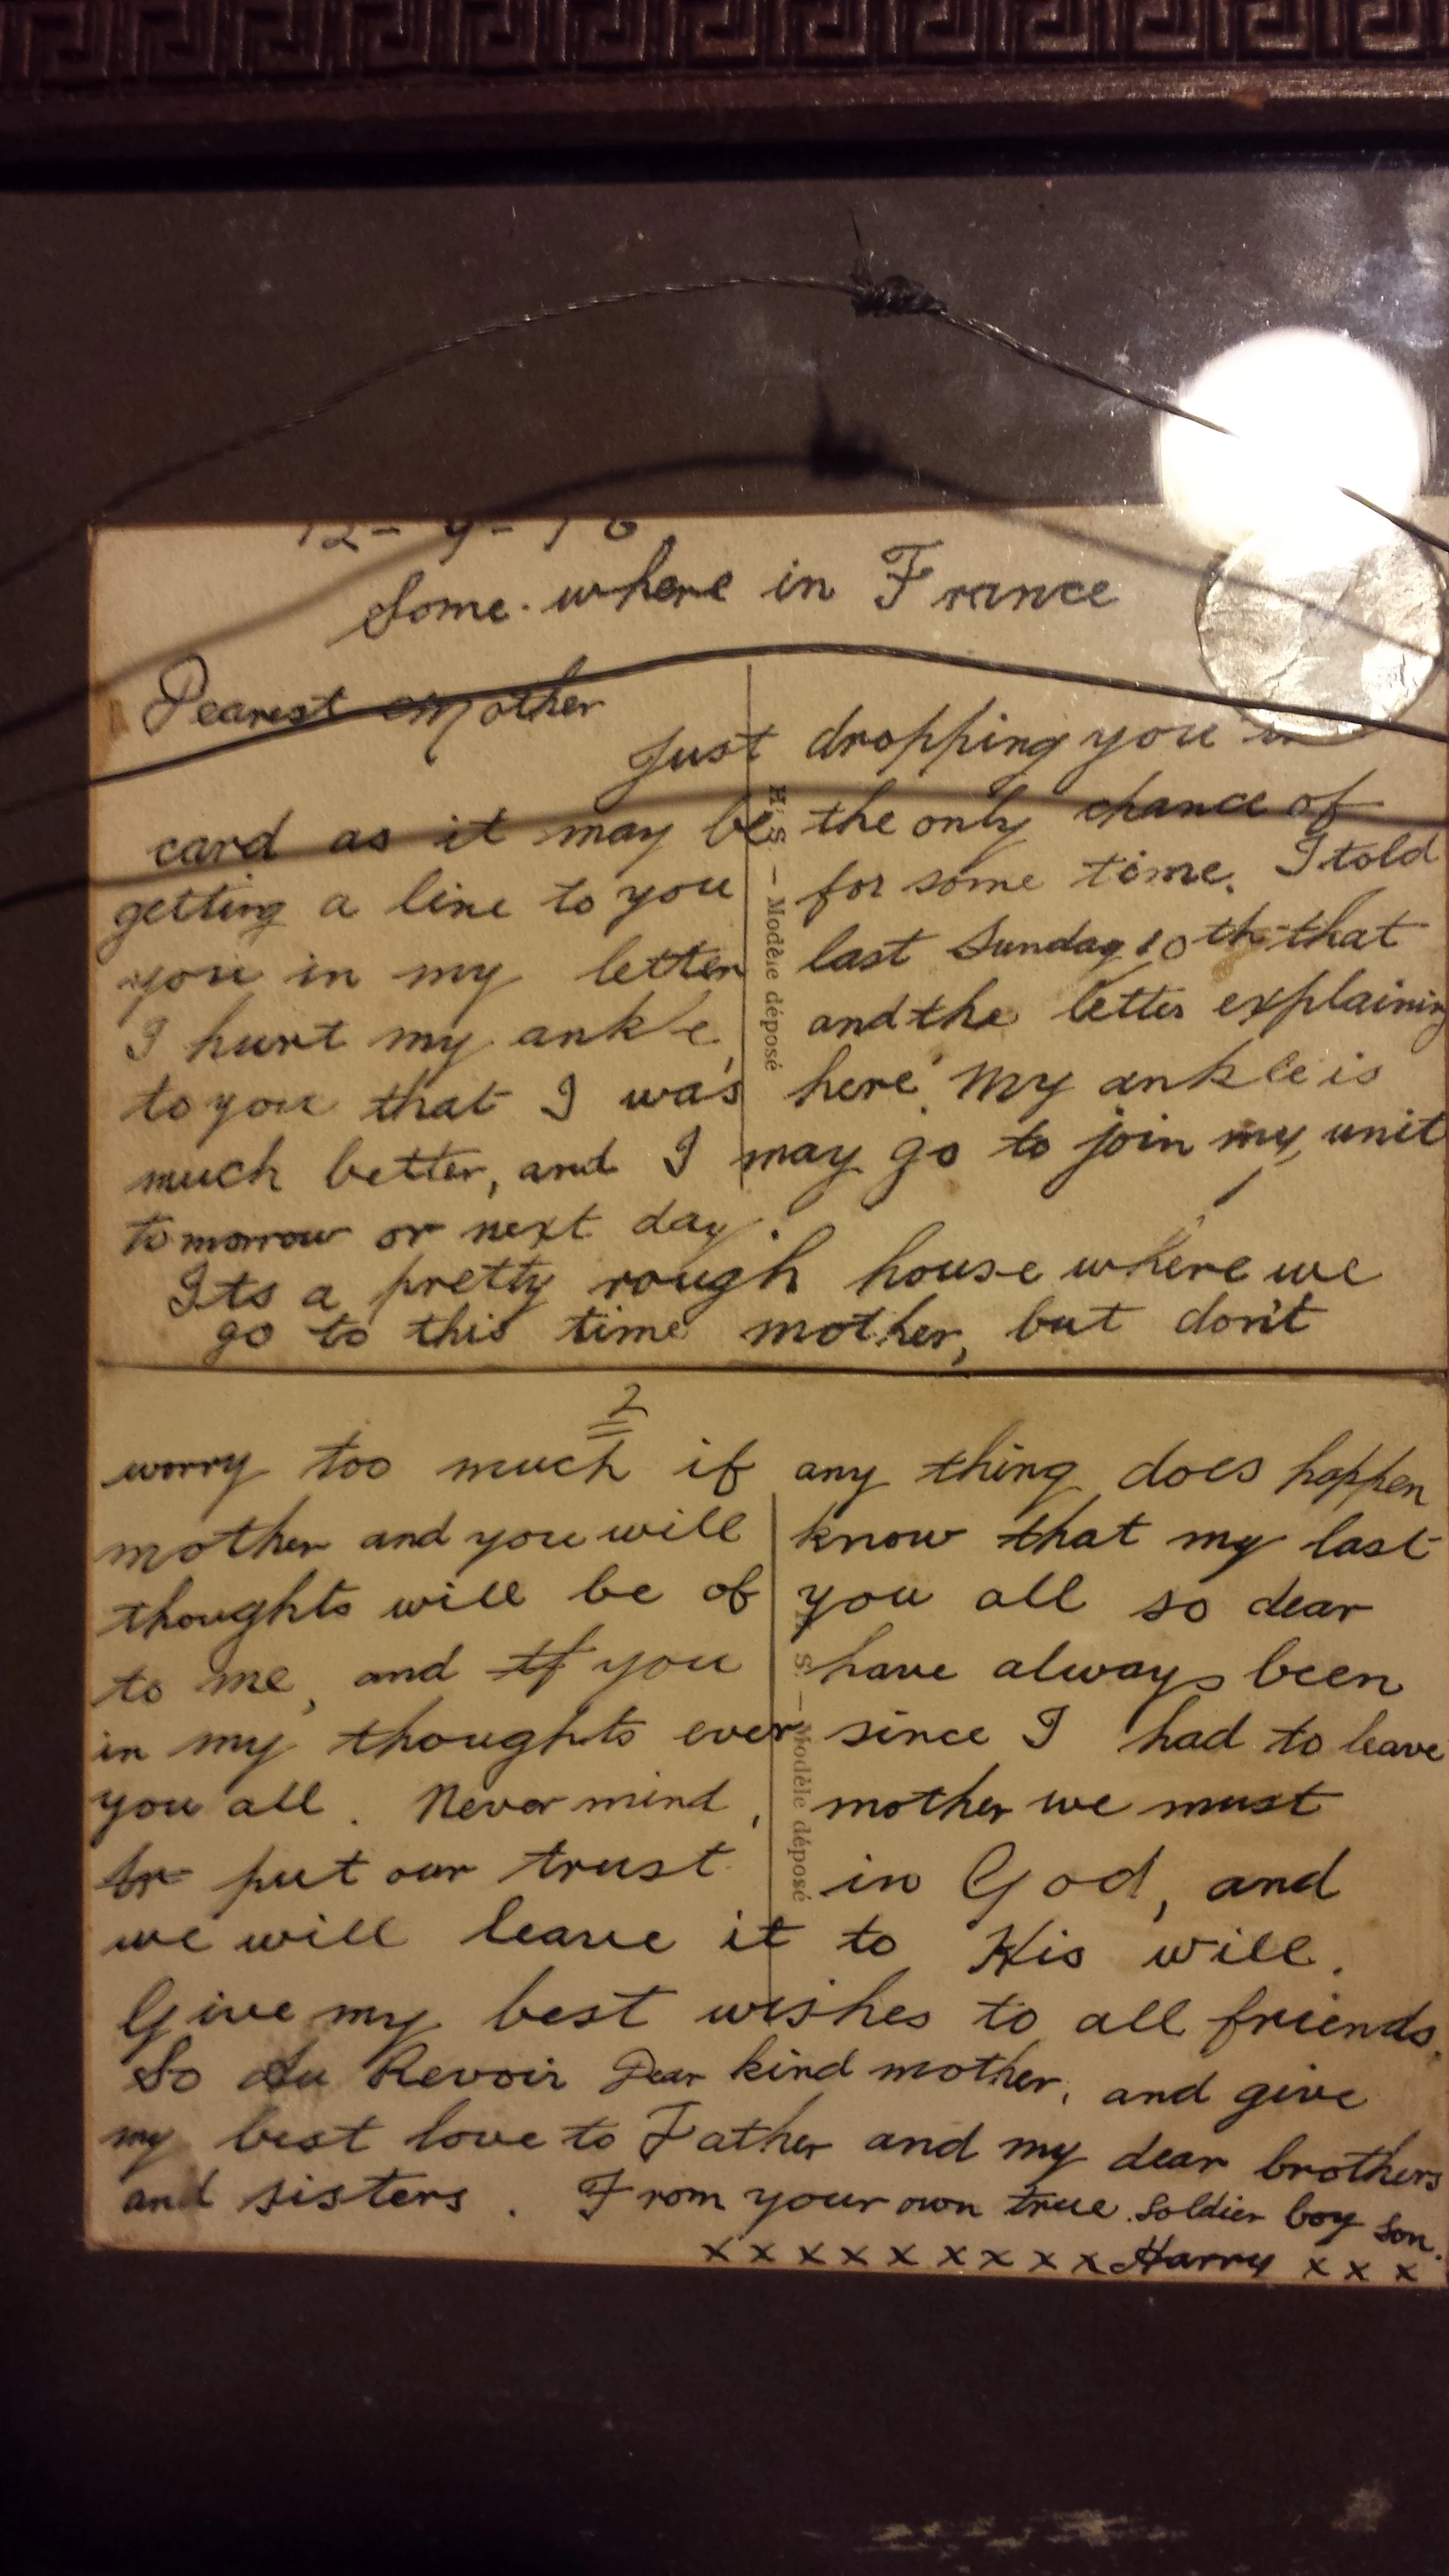 12-9-16
Some where in France
Dearest mother
Just dropping you
card as it may be the only chance of
getting a line to you for some time. I told
you in my letter last Sunday 10th that
I hurt my ankle, and the letter explaining
to you that I was here. My ankle is
much better, and I may go to join my unit
tomorrow or next day.
Its a pretty rough house where we
go to this time mother, but don't
2
worry too much if any thing does happen
mother and you will know that my last
thoughts will be of you all so dear
to me, and If you have always been
in my thoughts ever since I had to leave
you all. Never mind, mother we must
put our trust in God, and
we will leave it to His will.
Give my best wishes to all friends.
So Au Revoir Dear kind mother, and give
my best love to Father and my dear brothers
and sisters. From your own true soldier boy son.
x x x x x x x x x x Harry x x x
H. S. — Modèle déposé
S. — Modèle déposé